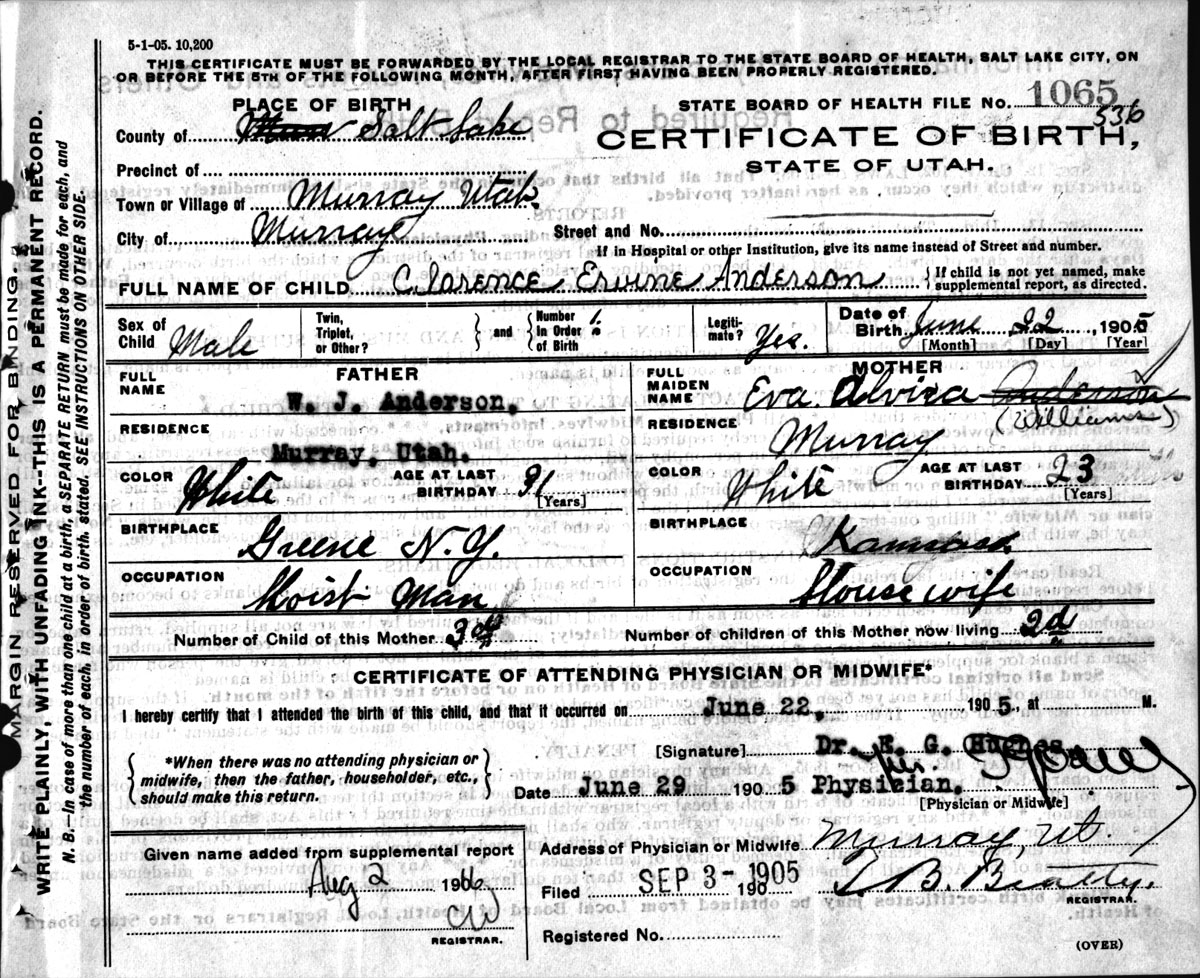 5-1-05. 10,200
THIS CERTIFICATE MUST BE FORWARDED BY THE LOCAL REGISTRAR TO THE STATE BOARD OF HEALTH, SALT LAKE CITY, ON
OR BEFORE THE 5TH OF THE FOLLOWING MONTH, AFTER FIRST HAVING BEEN PROPERLY REGISTERED.
PLACE OF BIRTH
County of Salt Lake
Precinct of
Town or Village of Murray Utah.
City of Murray
STATE BOARD OF HEALTH FILE NO. 1065
536
CERTIFICATE OF BIRTH,
STATE OF UTAH.
Street and No.
If in Hospital or other Institution, give its name instead of Street and number.
FULL NAME OF CHILD Clarence Ervine Anderson { If child is not yet named, make supplemental report, as directed.
Sex of Child Male
Twin, Triplet, or Other? } and { Number in Order of Birth
Legitimate? Yes.
Date of Birth June 22, 1905
[Month] [Day] [Year]
FATHER
FULL NAME W. J. Anderson.
RESIDENCE Murray, Utah.
COLOR White AGE AT LAST BIRTHDAY 31 [Years]
BIRTHPLACE Greene N.Y.
OCCUPATION Hoist Man
MOTHER
FULL MAIDEN NAME Eva Alviza Anderson
(Williams)
RESIDENCE Murray
COLOR White AGE AT LAST BIRTHDAY 23 [Years]
BIRTHPLACE
OCCUPATION House wife
Number of Child of this Mother 3d Number of children of this Mother now living 2d
CERTIFICATE OF ATTENDING PHYSICIAN OR MIDWIFE*
I hereby certify that I attended the birth of this child, and that it occurred on June 22, 1905, at M.
{ *When there was no attending physician or midwife, then the father, householder, etc., should make this return. }
[Signature] Dr. E. G. Hughes
Date June 29 1905 Physician.
[Physician or Midwife]
Given name added from supplemental report
Aug 2 1966
CW
REGISTRAR.
Address of Physician or Midwife Murray, Ut.
Filed SEP 3-1905 190 T. B. Beatty.
REGISTRAR.
Registered No.
(OVER)
MARGIN RESERVED FOR BINDING.
WRITE PLAINLY, WITH UNFADING INK--THIS IS A PERMANENT RECORD.
N. B.—In case of more than one child at a birth, a SEPARATE RETURN must be made for each, and
the number of each, in order of birth, stated. SEE INSTRUCTIONS ON OTHER SIDE.